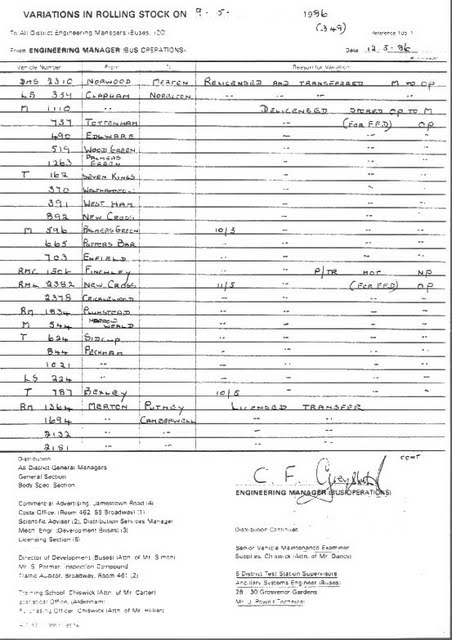 VARIATIONS IN ROLLING STOCK ON 9.5. 1986
(349)
To All District Engineering Managers (Buses)
From ENGINEERING MANAGER (BUS OPERATIONS) Date 12.5.86
Vehicle Number From To Reason for Variation
DMS 2310 NORWOOD MERTON RELICENSED AND TRANSFERRED M TO OP
LS 354 CLAPHAM NORBITON " " " "
M 1110 " DELICENSED STORED OP TO M
737 TOTTENHAM " (FOR F.F.D) OP
490 EDGWARE " " "
519 WOOD GREEN " " "
1263 PALMERS GREEN " " "
T 162 SEVEN KINGS " " "
370 WALTHAMSTOW " " "
391 WEST HAM " " "
892 NEW CROSS " " "
M 596 PALMERS GREEN 10/5 " " "
665 POTTERS BAR " " " "
703 ENFIELD " " " "
RMC 1506 FINCHLEY " P/TR HOT NP
RML 2382 NEW CROSS 11/5 " (FOR F.F.D) OP
2378 CRICKLEWOOD " " "
RM 1834 PLUMSTEAD " " "
M 544 HARROW WEALD " " "
T 624 SIDCUP " " "
844 PECKHAM " " "
1021 " " " "
LS 224 " " " "
T 787 BEXLEY 10/5 " " "
RM 1364 MERTON PUTNEY LICENSED TRANSFER
1694 " CAMBERWELL " "
2132 " " " "
2181 " " " "
CONT
Distribution
All District General Managers
General Section
Body Spec. Section
C. F.
ENGINEERING MANAGER (BUS OPERATIONS)
Commercial Advertising, Jamestown Road (4)
Costs Office, (Room 462, 55 Broadway) (1)
Scientific Adviser (2), Distribution Services Manager
Mech. Engr. (Development Buses) (3)
Licensing Section (5)
Distribution Continued
Director of Development (Buses) (Attn. of Mr. Simon)
Mr. S. Parmar, Inspection Compound
Traffic Auditor, Broadway, Room 461 (2)
Senior Vehicle Maintenance Examiner
Supplies, Chiswick (Attn. of Mr. Dancy)
5 District Test Station Supervisors
Ancillary Systems Engineer (Buses)
28 - 30 Grosvenor Gardens
Training School, Chiswick (Attn. of Mr. Carter)
Statistical Office, (Aldenham)
Purchasing Officer, Chiswick (Attn. of Mr.
Mr. J. Powell